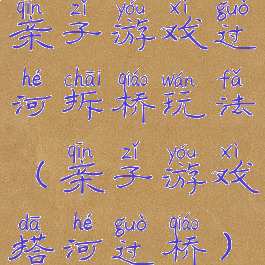 qīn zǐ yóu xì guò
亲子游戏过
hé chāi qiáo wán fǎ
河拆桥玩法
qīn zǐ yóu xì
（亲子游戏
dā hé guò qiáo
搭河过桥）